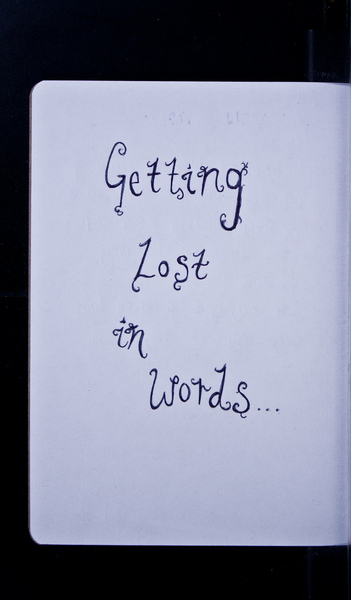 Getting
Lost
in
Words...